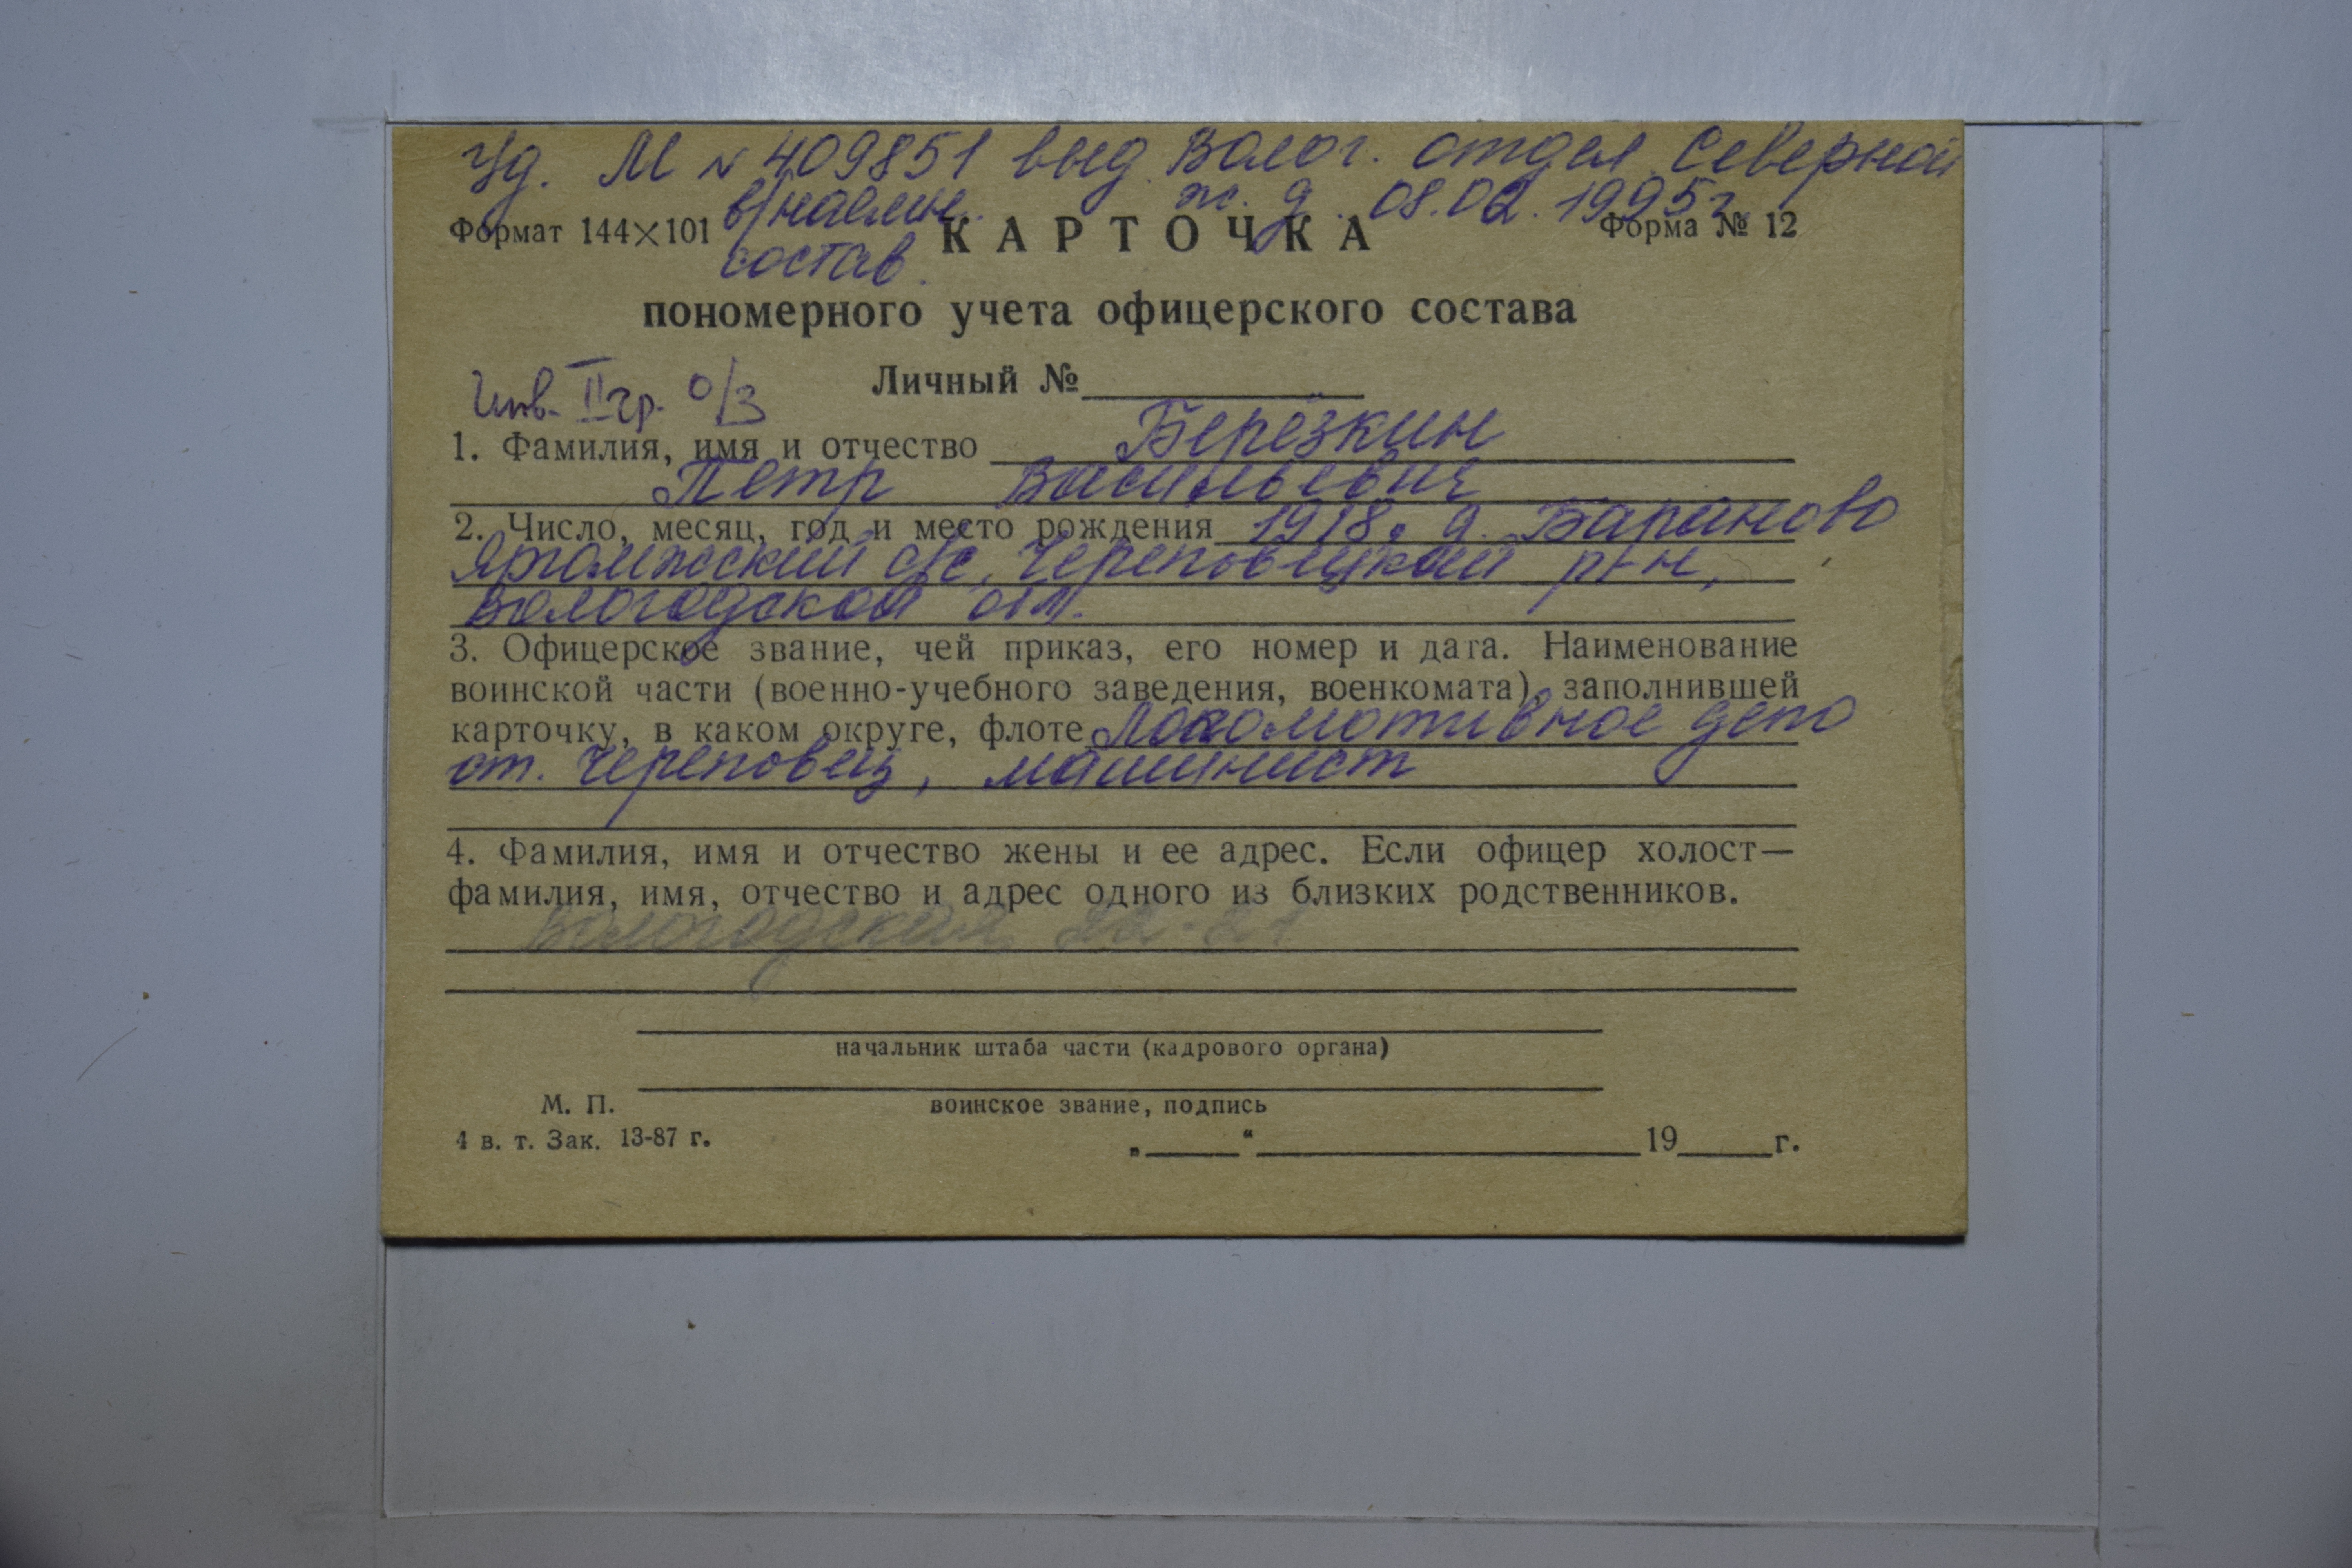 Уд. М № 409851 выд. Волог. отдел. Северной
ж. д. 08.02.1995г.
в/наёмн. состав.
Формат 144×101 КАРТОЧКА Форма № 12
пономерного учета офицерского состава
Инв. II гр. о/з Личный №
1. Фамилия, имя и отчество Берёзкин
Петр Васильевич
2. Число, месяц, год и место рождения 1918, д. Бараново
с/с, Череповецкий р-н,
Вологодской обл.
3. Офицерское звание, чей приказ, его номер и дата. Наименование
воинской части (военно-учебного заведения, военкомата), заполнившей
карточку, в каком округе, флоте Локомотивное депо
ст. Череповец, машинист
4. Фамилия, имя и отчество жены и ее адрес. Если офицер холост—
фамилия, имя, отчество и адрес одного из близких родственников.
Вологодская
начальник штаба части (кадрового органа)
М. П. воинское звание, подпись
4 в. т. Зак. 13-87 г.
„ “ 19 г.